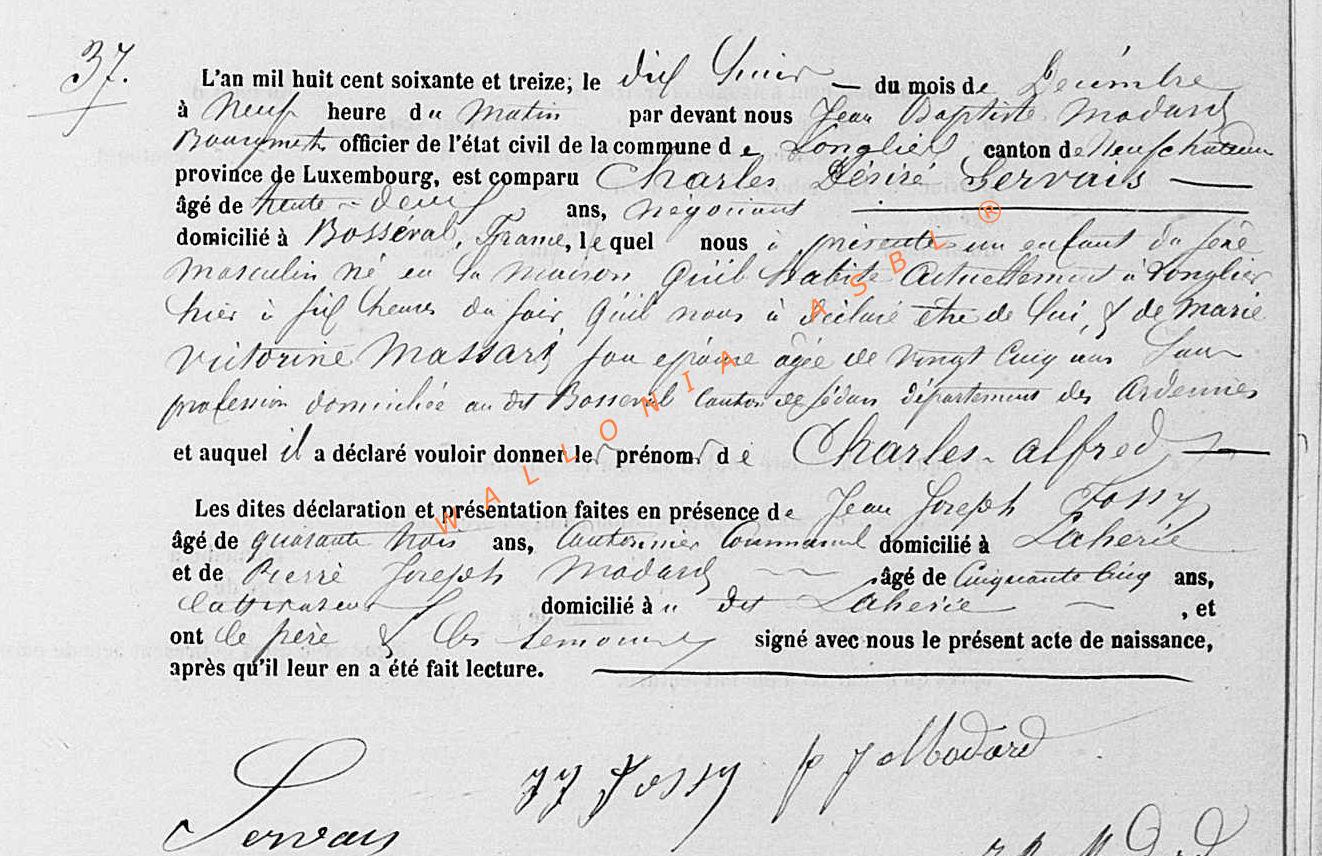 37.
L'an mil huit cent soixante et treize; le dix huit — du mois de Décembre
à Neuf heure du Matin par devant nous Jean Baptiste Modard
Bourgmestre officier de l'état civil de la commune de Longlier, canton de Neufchateau
province de Luxembourg, est comparu Charles Désiré Servais —
âgé de trente-deux ans, négociant
domicilié à Bosséval, France, lequel nous à présenté un enfant du sexe
masculin né en la maison qu'il habite actuellement à Longlier
hier à six heures du soir, qu'il nous à déclaré être de lui, & de Marie
Victorine Massart son epouse agée de vingt cinq ans Sans
profession domiciliée au dit Bosseval canton de Sédan département des Ardennes
et auquel il a déclaré vouloir donner les prénoms de Charles-Alfred —
Les dites déclaration et présentation faites en présence de Jean Joseph Fossy
âgé de quarante trois ans, Cantonnier Communal domicilié à Laherie
et de Pierre Joseph Modard âgé de Cinquante Cinq ans,
Cultivateur domicilié à u dit Laherie , et
ont le père & les temoins signé avec nous le présent acte de naissance,
après qu'il leur en a été fait lecture.
Servais JJ Fossy p J Modard
WALLONIA ASBL ®